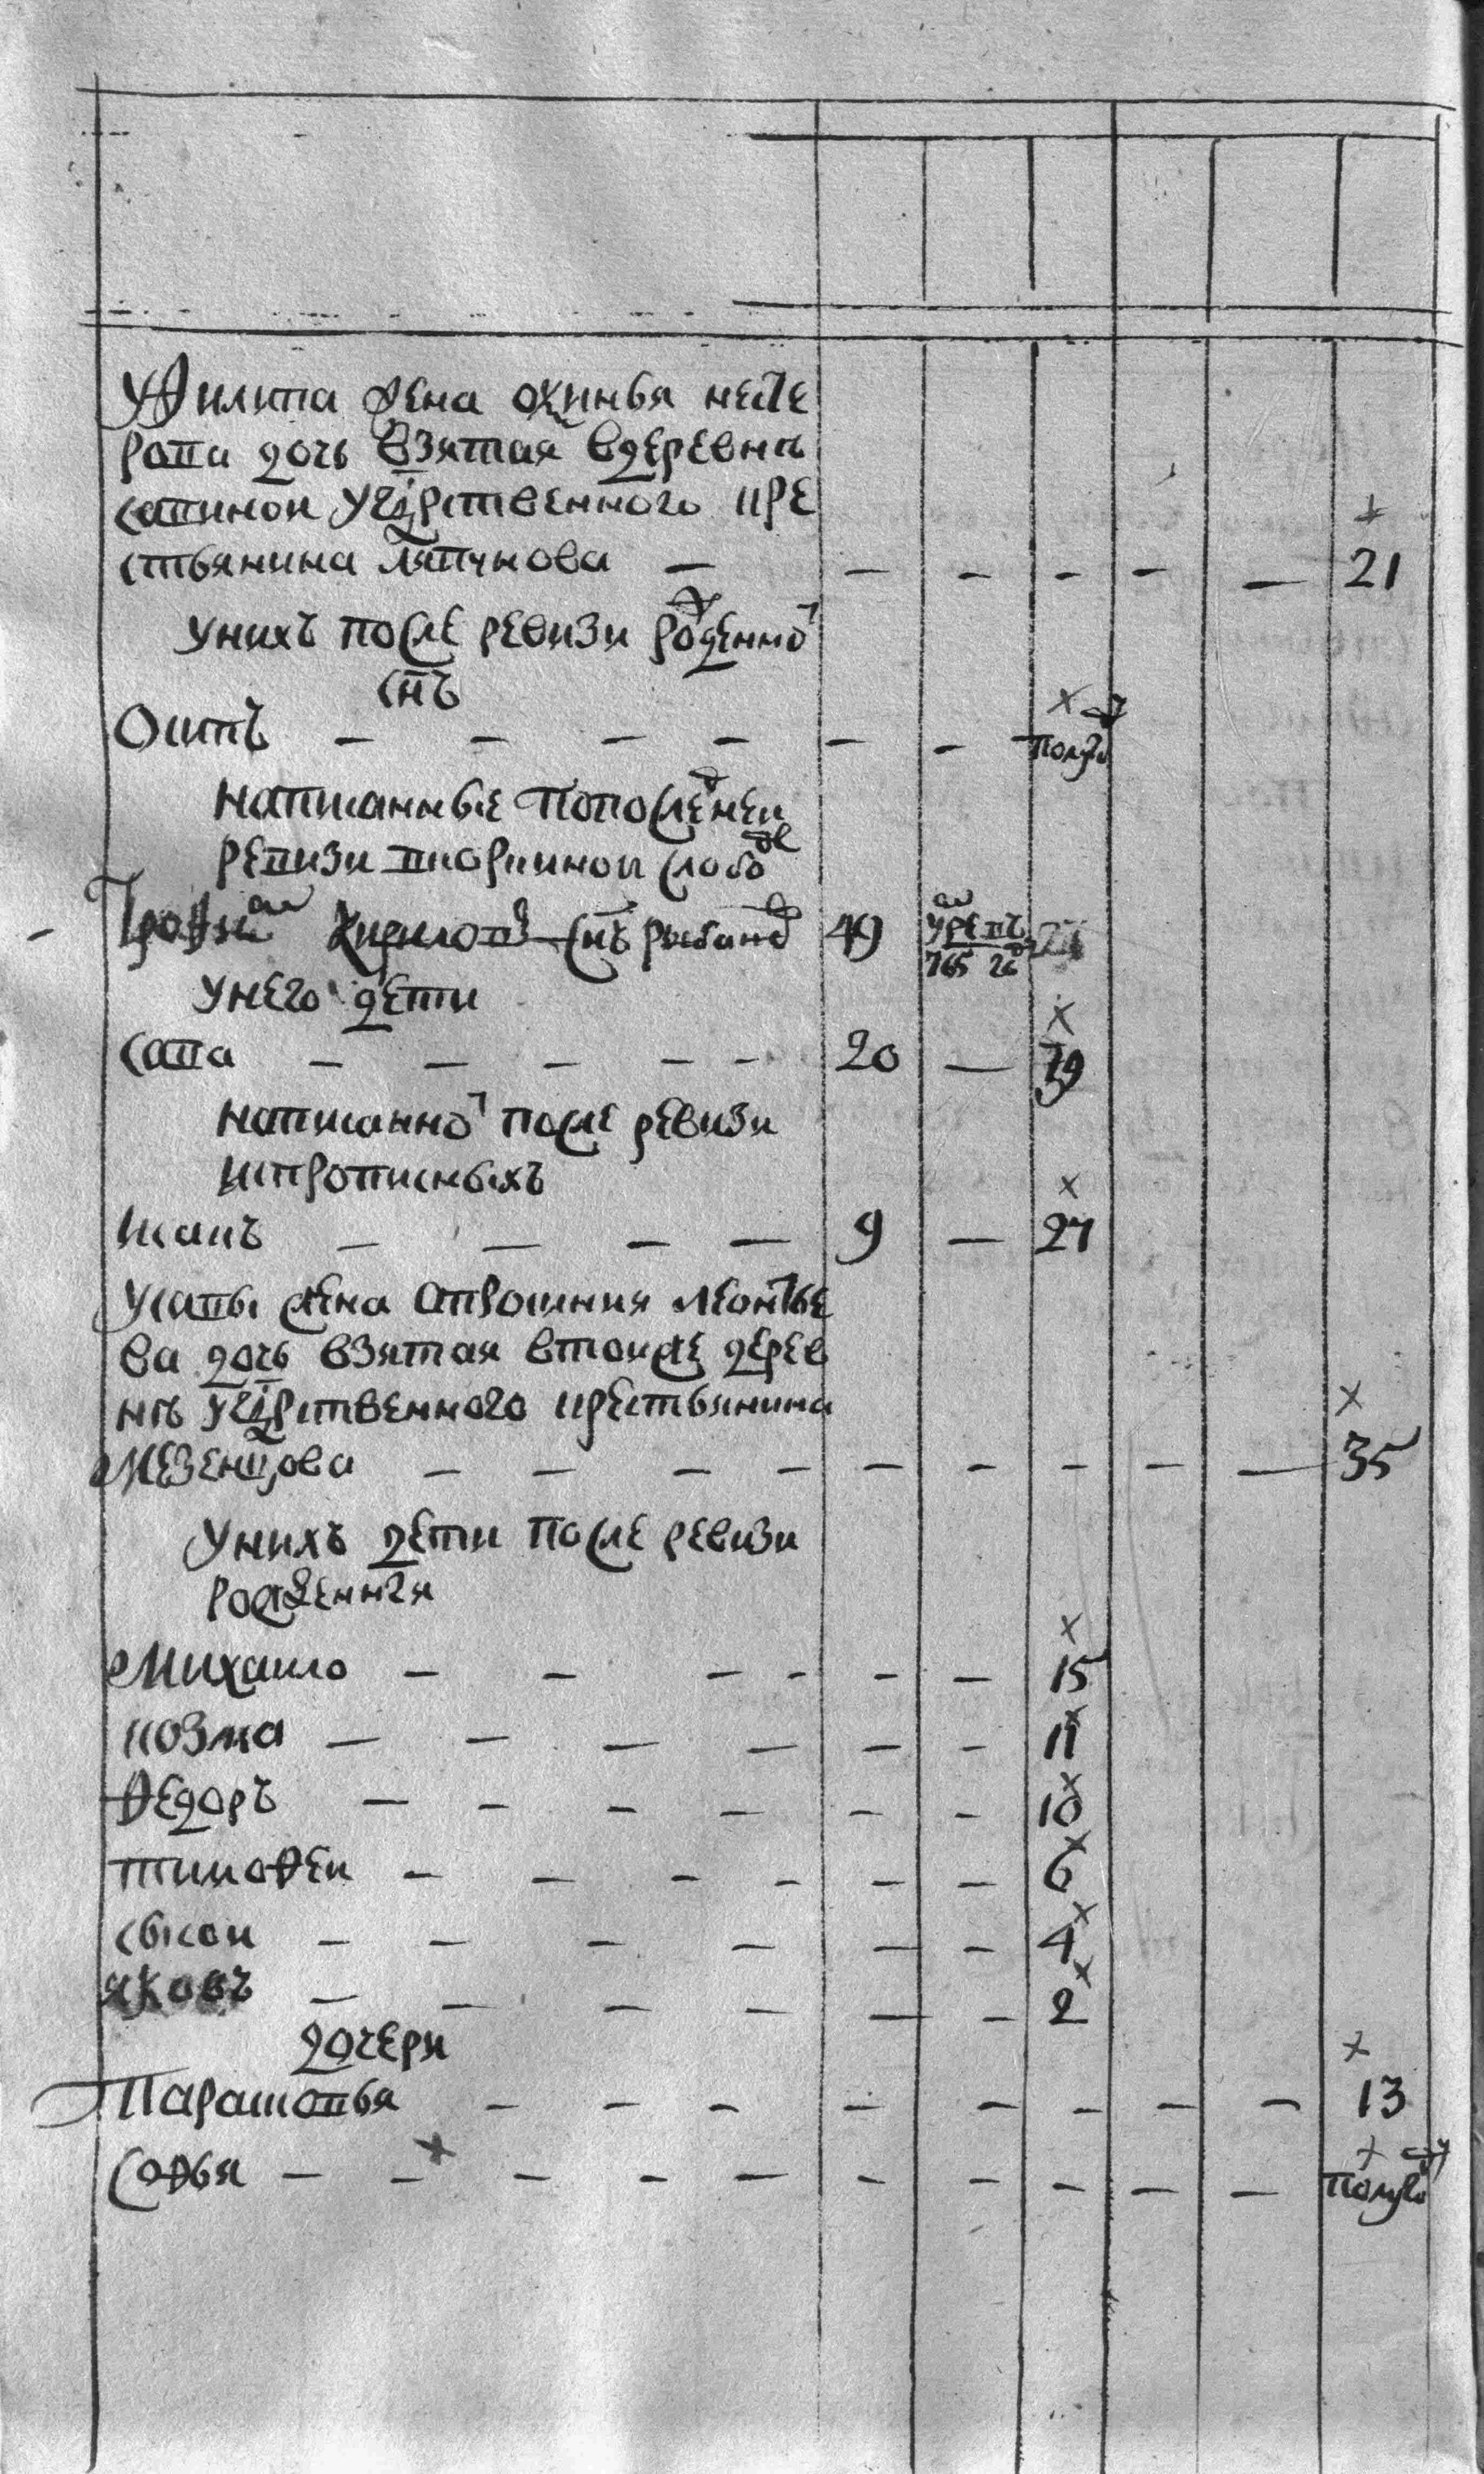 У Филипа жена Афинья несте
рова дочь взятая вдеревнѣ
савиной Угдрственного кре
стьянина Ляпунова — — — — — — 21
унихъ после ревизи рожденной
снъ
Осипъ — — — — — — полуго
написанные попоследней
ревизи вшоршиной слобод
Трофим Кирилов снъ рыбанов 49 умре въ 765 го
унего дети
сава — — — — — 20 — 39
написанной после ревизи
ис прописныхъ
Исакъ — — — — 9 — 27
Усавы жена Апросиния леонтье
ва дочь взятая втойже дерев
нѣ Угдрственного крестьянина
Мезенцова — — — — — — — — — 35
унихъ дети после ревизи
рожденныя
Михаило — — — — — — 15
козма — — — — — — 11
Федоръ — — — — — — 10
тимофеи — — — — — — 6
сысои — — — — — — 4
яковъ — — — — — — 2
дочери
Парасковья — — — — — — — — 13
Софья — — — — — — — — — — полуго